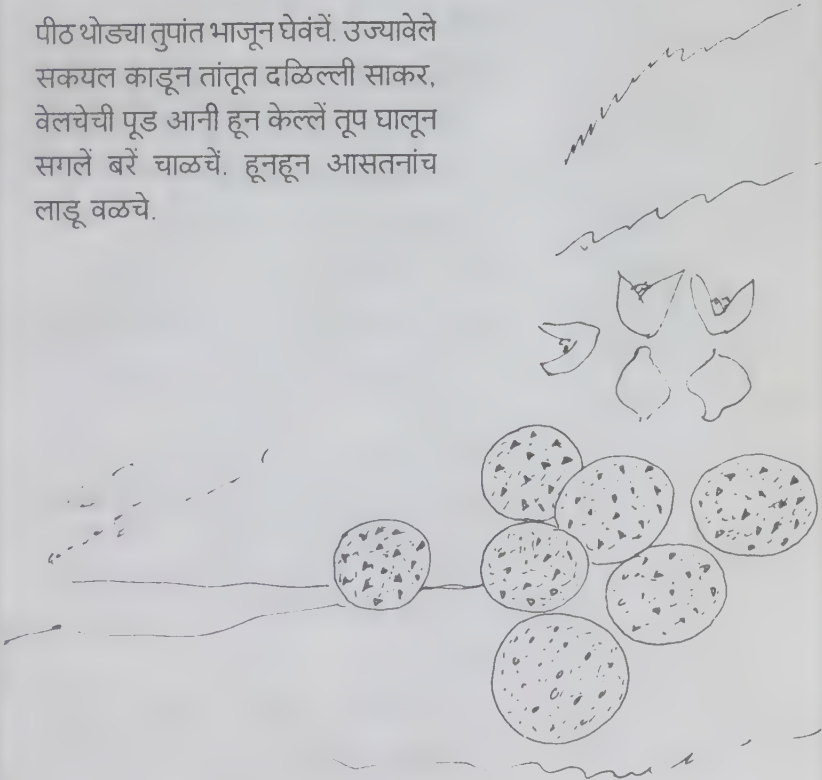 पीठ थोड्या तुपांत भाजून घेवंचें. उज्यावेले
सकयल काडून तांतूत दळिल्ली साकर,
वेलचेची पूड आनी हून केल्लें तूप घालून
सगलें बरें चाळचें. हूनहून आसतनांच
लाडू वळचे.